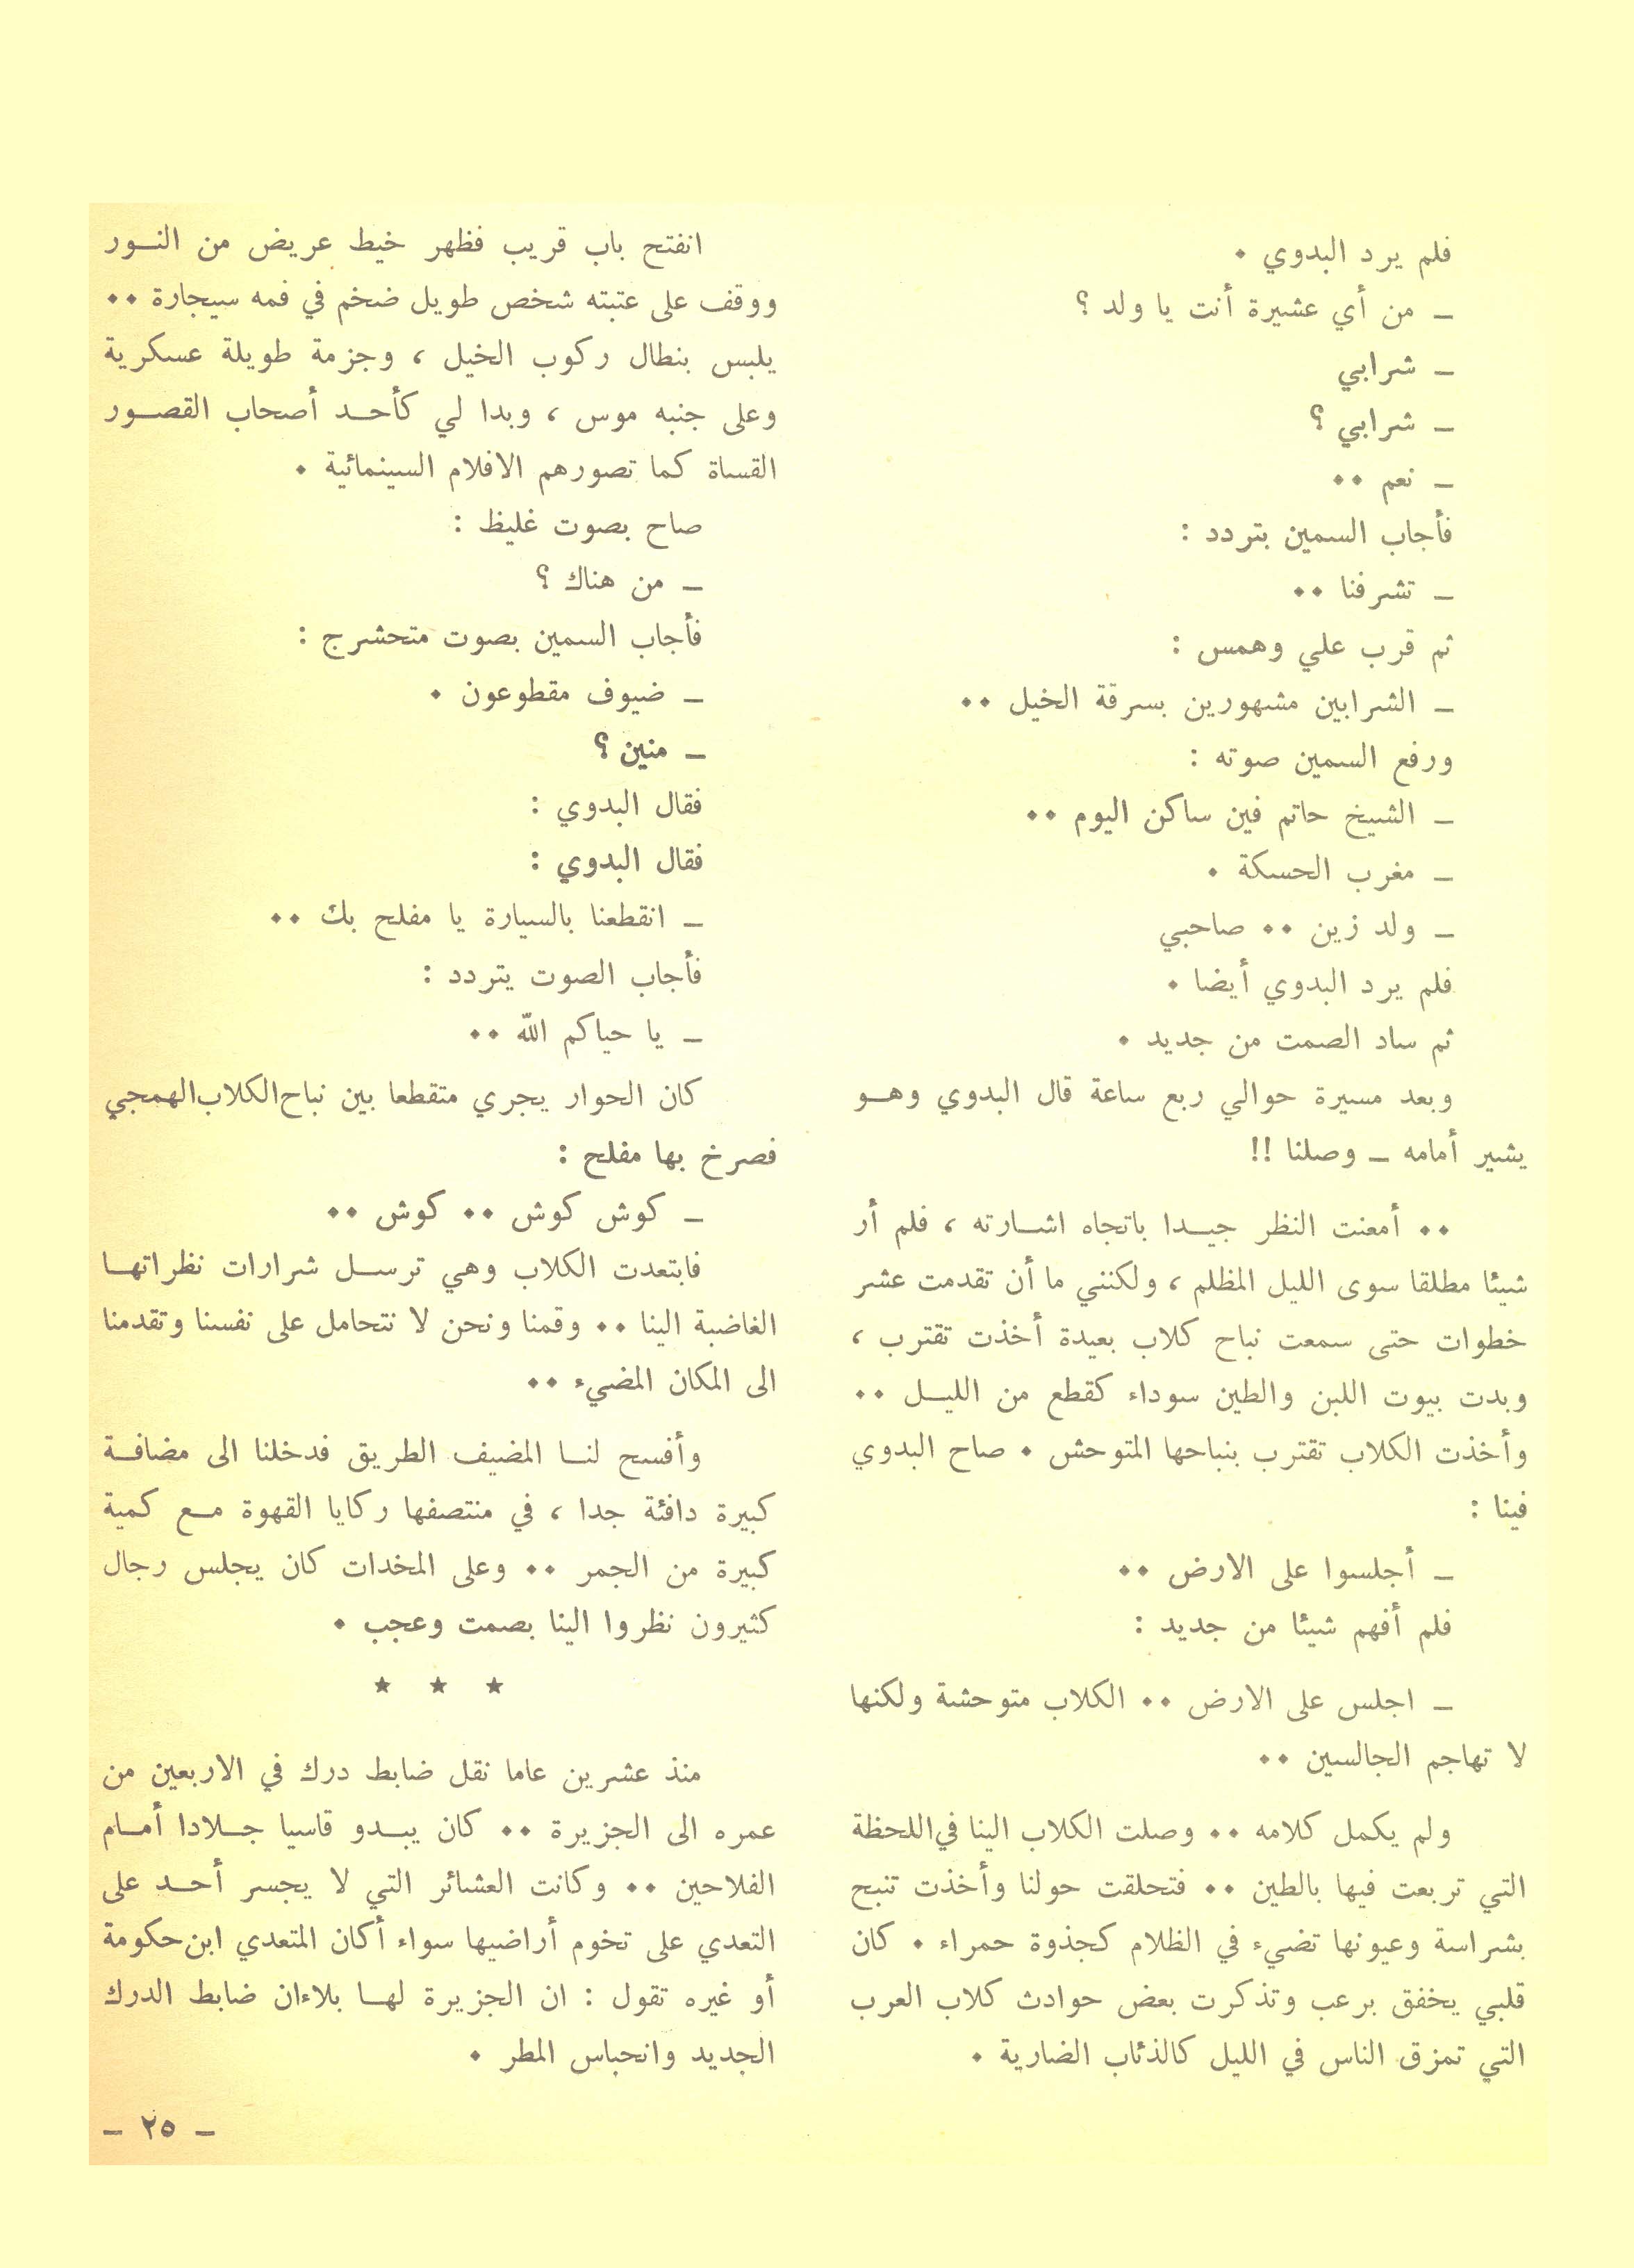 فلم يرد البدوي •
ـ من أي عشيرة أنت يا ولد ؟
ـ شرابي
ـ شرابي ؟
ـ نعم ••
فأجاب السمين بتردد :
ـ تشرفنا ••
ثم قرب علي وهمس :
ـ الشرابين مشهورين بسرقة الخيل ••
ورفع السمين صوته :
ـ الشيخ حاتم فين ساكن اليوم ••
ـ مغرب الحسكة •
ـ ولد زين •• صاحبي
فلم يرد البدوي أيضا •
ثم ساد الصمت من جديد •
وبعد مسيرة حوالي ربع ساعة قال البدوي وهو
يشير أمامه ـ وصلنا !!
•• أمعنت النظر جيدا باتجاه اشارته ، فلم أر
شيئا مطلقا سوى الليل المظلم ، ولكنني ما أن تقدمت عشر
خطوات حتى سمعت نباح كلاب بعيدة أخذت تقترب ،
وبدت بيوت اللبن والطين سوداء كقطع من الليل ••
وأخذت الكلاب تقترب بنباحها المتوحش • صاح البدوي
فينا :
ـ أجلسوا على الارض ••
فلم أفهم شيئا من جديد :
ـ اجلس على الارض •• الكلاب متوحشة ولكنها
لا تهاجم الجالسين ••
ولم يكمل كلامه •• وصلت الكلاب الينا في اللحظة
التي تربعت فيها بالطين •• فتحلقت حولنا وأخذت تنبح
بشراسة وعيونها تضيء في الظلام كجذوة حمراء • كان
قلبي يخفق برعب وتذكرت بعض حوادث كلاب العرب
التي تمزق الناس في الليل كالذئاب الضارية •
انفتح باب قريب فظهر خيط عريض من النور
ووقف على عتبته شخص طويل ضخم في فمه سيجارة ••
يلبس بنطال ركوب الخيل ، وجزمة طويلة عسكرية
وعلى جنبه موس ، وبدا لي كأحد أصحاب القصور
القساة كما تصورهم الافلام السينمائية •
صاح بصوت غليظ :
ـ من هناك ؟
فأجاب السمين بصوت متحشرج :
ـ ضيوف مقطوعون •
ـ منين ؟
فقال البدوي :
فقال البدوي :
ـ انقطعنا بالسيارة يا مفلح بك ••
فأجاب الصوت يتردد :
ـ يا حياكم الله ••
كان الحوار يجري متقطعا بين نباح الكلاب الهمجي
فصرخ بها مفلح :
ـ كوش كوش •• كوش ••
فابتعدت الكلاب وهي ترسل شرارات نظراتها
الغاضبة الينا •• وقمنا ونحن لا نتحامل على نفسنا وتقدمنا
الى المكان المضيء ••
وأفسح لنا المضيف الطريق فدخلنا الى مضافة
كبيرة دافئة جدا ، في منتصفها ركايا القهوة مع كمية
كبيرة من الجمر •• وعلى المخدات كان يجلس رجال
كثيرون نظروا الينا بصمت وعجب •
★ ★ ★
منذ عشرين عاما نقل ضابط درك في الاربعين من
عمره الى الجزيرة •• كان يبدو قاسيا جلادا أمام
الفلاحين •• وكانت العشائر التي لا يجسر أحد على
التعدي على تخوم أراضيها سواء أكان المتعدي ابن حكومة
أو غيره تقول : ان الجزيرة لها بلاءان ضابط الدرك
الجديد وانحباس المطر •
ـ ٢٥ ـ